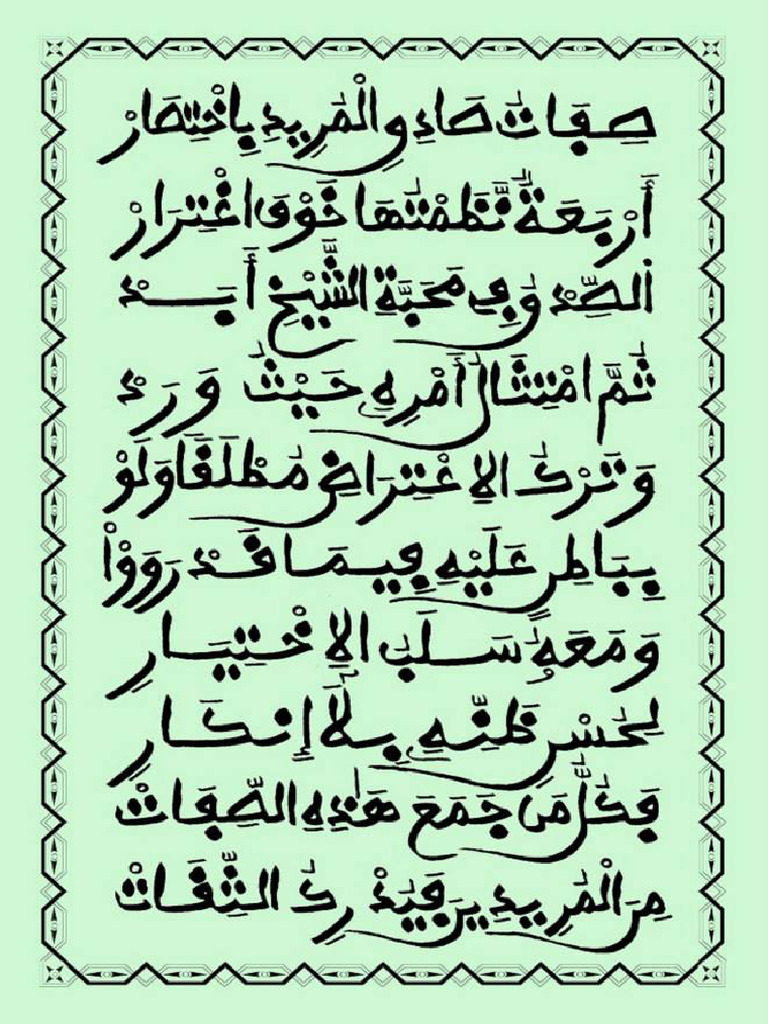 صِفَاتُ صَادِقِ الْمُرِيدِ بِاخْتِصَارْ
أَرْبَعَةٌ نَّظَمْتُهَا خَوْفَ اغْتِرَارْ
اَلصِّدْقُ فِي مَحَبَّةِ الشَّيْخِ أَبَدْ
ثُمَّ امْتِثَالُ أَمْرِهِ حَيْثُ وَرَدْ
وَتَرْكُ الِاعْتِرَاضِ مُطْلَقًا وَلَوْ
بِبَاطِنٍ عَلَيْهِ فِيمَا قَدْ رَوَوْا
وَمَعَهُ سَلْبُ الِاخْتِيَارِ
لِحُسْنِ ظَنِّهِ بِلَا إِنْكَارِ
فَكُلُّ مَنْ جَمَعَ هَذِهِ الصِّفَاتْ
مِنَ الْمُرِيدِينَ فَيُدْرِكُ الثِّقَاتْ